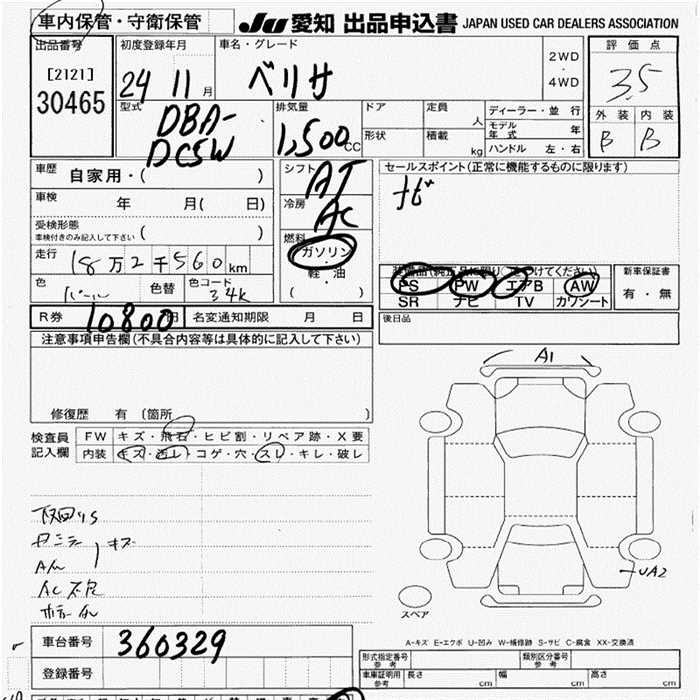 車内保管・守衛保管
JU 愛知 出品申込書 JAPAN USED CAR DEALERS ASSOCIATION
出品番号
[2121]
30465
初度登録年月
24 11 月
車名・グレード
ベリサ
2WD
・
4WD
評価点
3.5
外装 内装
B B
型式
DBA-
DC5W
排気量
1,500 CC
ドア
定員 人
形状
積載 kg
ディーラー・並行
モデル年式 年
ハンドル 左・右
車歴 自家用・( )
車検 年 月( 日)
受検形態
車検付きのみ記入して下さい ( )
走行 18万2千560km
色 パール 色替 色コード 34K
シフト AT
冷房 AC
燃料
ガソリン
・
軽・油
( )
セールスポイント(正常に機能するものに限ります)
ナビ
装備品(純正品に限り○をつけてください)
PS PW エアB AW
SR ナビ TV カワシート
新車保証書
有・無
R券 10800円 名変通知期限 月 日
後日品
注意事項申告欄(不具合内容等は具体的に記入して下さい)
修復歴 有 (箇所 )
検査員記入欄
FW キズ・飛石・ヒビ割・リペア跡・X要
内装 キズ・汚レ・コゲ・穴・スレ・キレ・破レ
下回りS
キズ
AC不良
A1
UA2
スペア
A-キズ E-エクボ U-凹み W-補修跡 S-サビ C-腐食 XX-交換済
車台番号 360329
登録番号
形式指定番号 参考
類別区分番号 参考
車庫証明用 参考 長さ cm 幅 cm 高さ cm